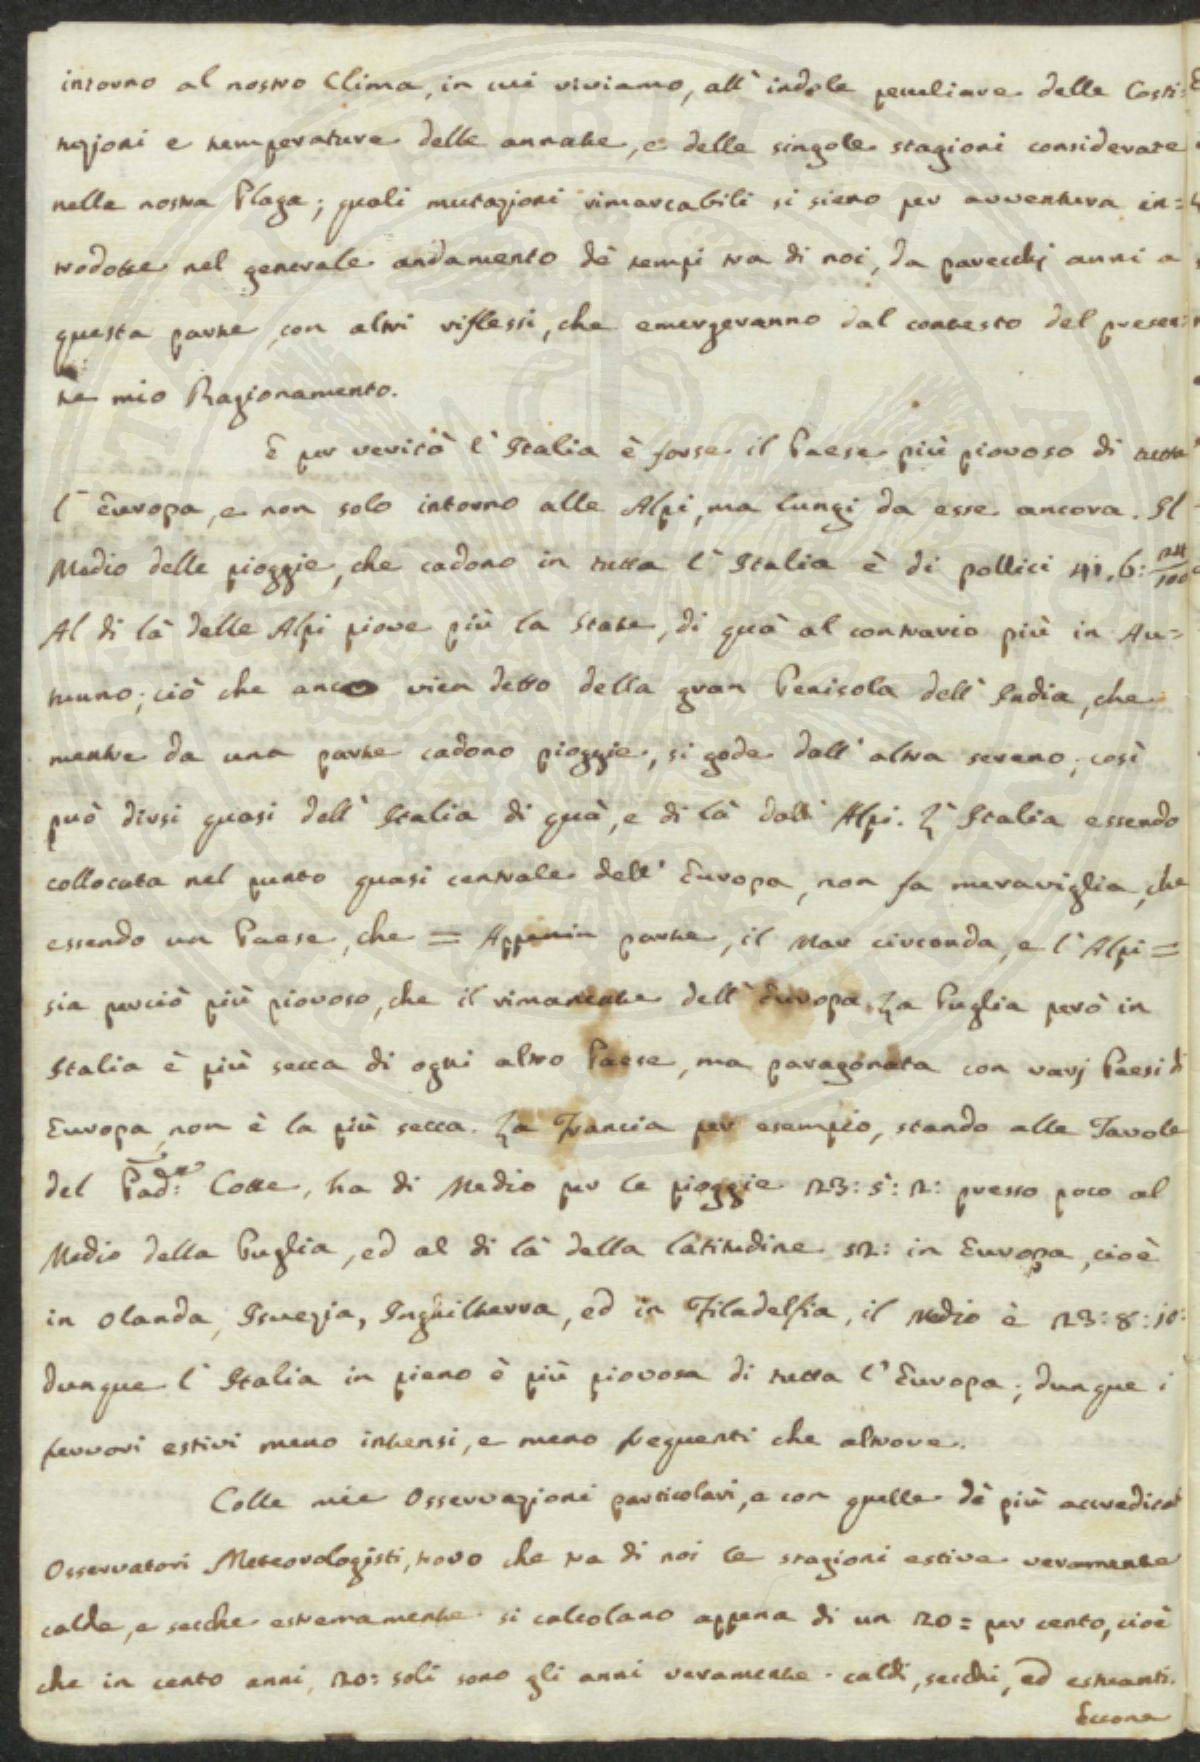 intorno al nostro Clima, in cui viviamo, all' indole peculiare delle Costi=
tuzioni e temperature delle annate, e delle singole stagioni considerate
nella nostra Plaga; quali mutazioni rimarcabili si sieno per avventura in=
trodotte nel generale andamento de' tempi tra di noi, da parecchj anni a
questa parte, con altri riflessi, che emergeranno dal contesto del presen=
te mio Ragionamento.
E per verità l' Italia è forse il Paese più piovoso di tutta
l' Europa, e non solo intorno alle Alpi, ma lungi da esse ancora. Il
Medio delle pioggie, che cadono in tutta l' Italia è di pollici 41. 6:
Al di là delle Alpi piove più la State, di quà al contrario più in Au=
tunno; ciò che anco vien detto della gran Penisola dell' India, che
mentre da una parte cadono pioggie, si gode dall' altra sereno; così
può dirsi quasi dell' Italia di quà, e di là dall' Alpi. L' Italia essendo
collocata nel punto quasi centrale dell' Europa, non fa meraviglia, che
essendo un Paese, che = Appenin parte, il Mar circonda, e l' Alpi =
sia perciò più piovoso, che il rimanente dell' Europa. La Puglia però in
Italia è più secca di ogni altro Paese, ma paragonata con varj Paesi di
Europa non è la più secca. La Francia per esempio, stando alle Tavole
del Pad:e Cotte, ha di Medio per le pioggie 23: 5: 2: presso poco al
Medio della Puglia, ed al di là della latitudine 52: in Europa, cioè
in Olanda, Isvezia, Inghilterra, ed in Filadelfia, il Medio è 23: 8: 10:
dunque l' Italia in pieno è più piovosa di tutta l' Europa; dunque i
fervori estivi meno intensi, e meno frequenti che altrove.
Colle mie Osservazioni particolari, e con quelle de' più accreditati
Osservatori Meteorologisti, trovo che tra di noi le stagioni estive veramente
calde, e secche estremamente si calcolano appena di un 20= per cento, cioè
che in cento anni, 20= soli sono gli anni veramente caldi, secchi, ed estuanti.
Eccone